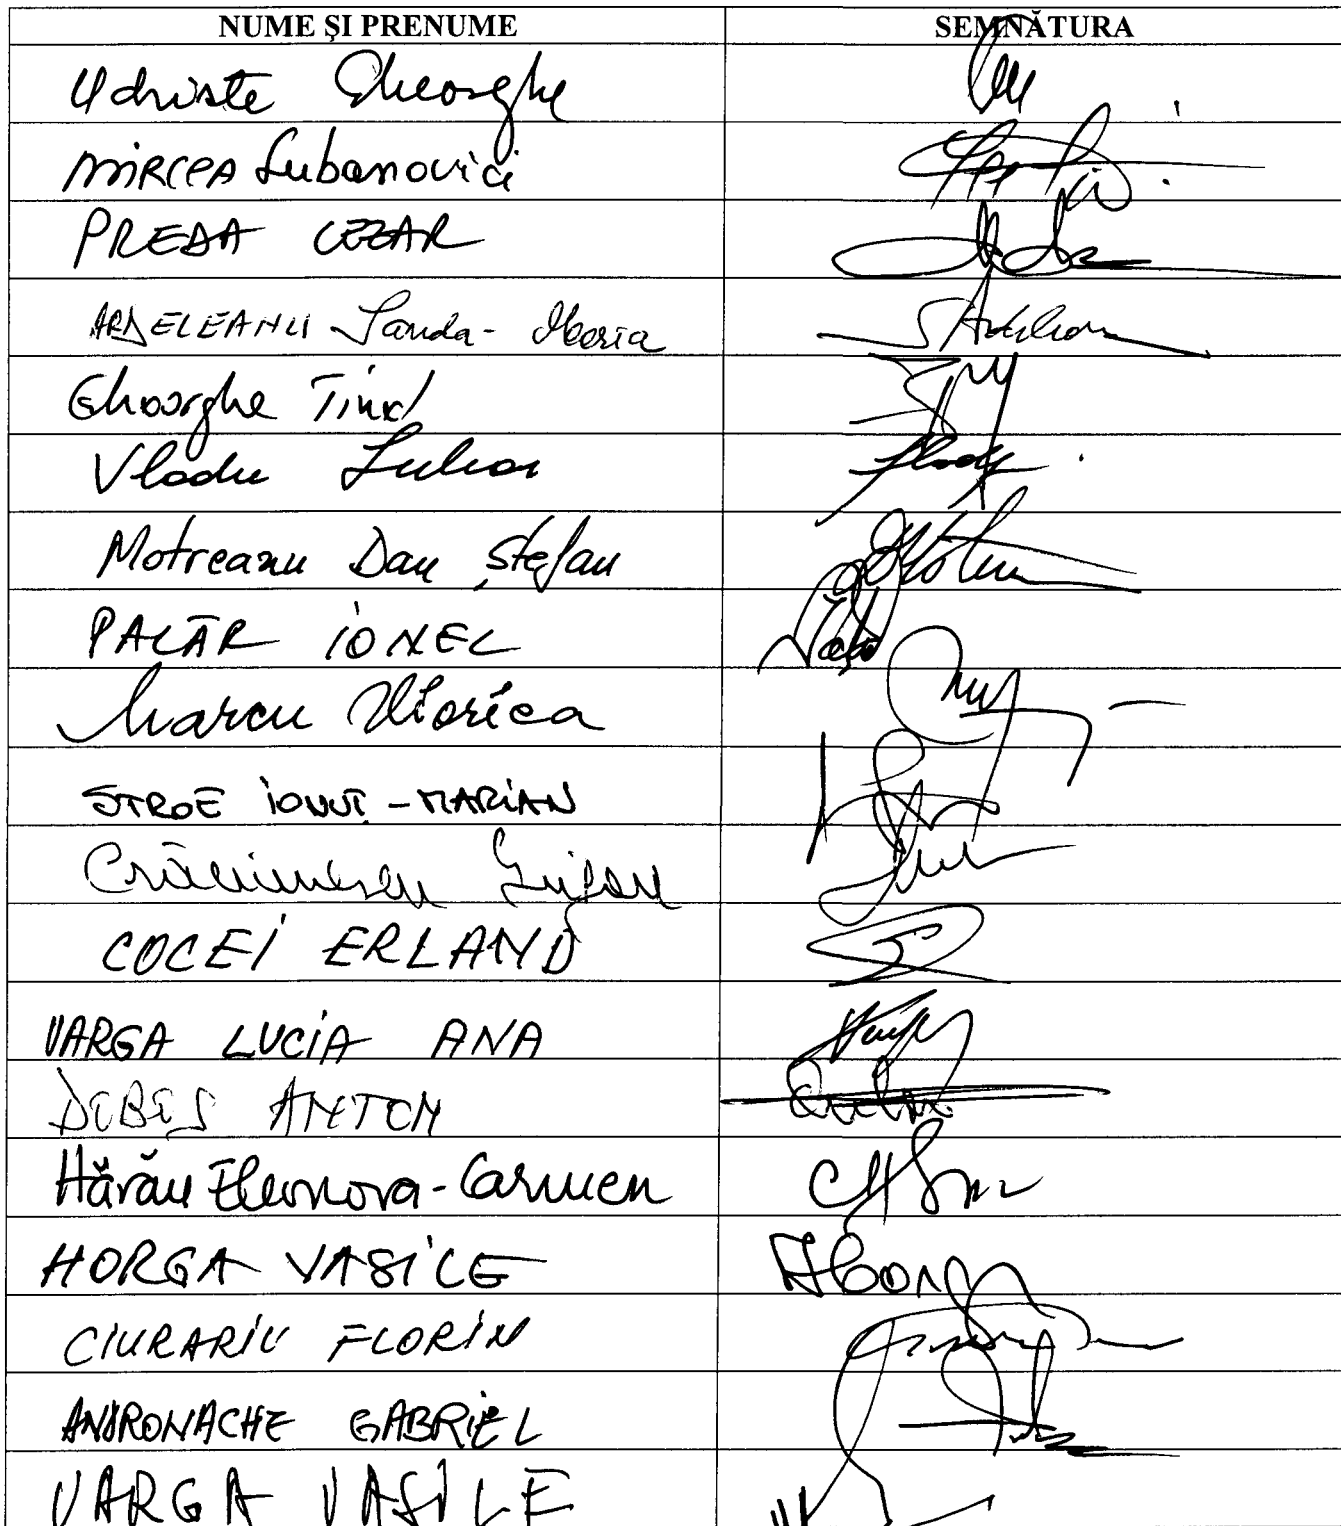 NUME ŞI PRENUME SEMNĂTURA
Udriste Gheorghe
MIRCEA Lubanovici
PREDA CEZAR
ARDELEANU Sanda-Maria
Gheorghe Tinel
Vladu Iulian
Motreanu Dan Ștefan
PALĂR IONEL
Marcu Viorica
STROE IONUȚ-MARIAN
Crăciunescu Grigore
COCEI ERLAND
VARGA LUCIA ANA
DOBEȘ ANTON
Hărău Eleonora-Carmen
HORGA VASILE
CIURARIU FLORIN
ANDRONACHE GABRIEL
VARGA VASILE